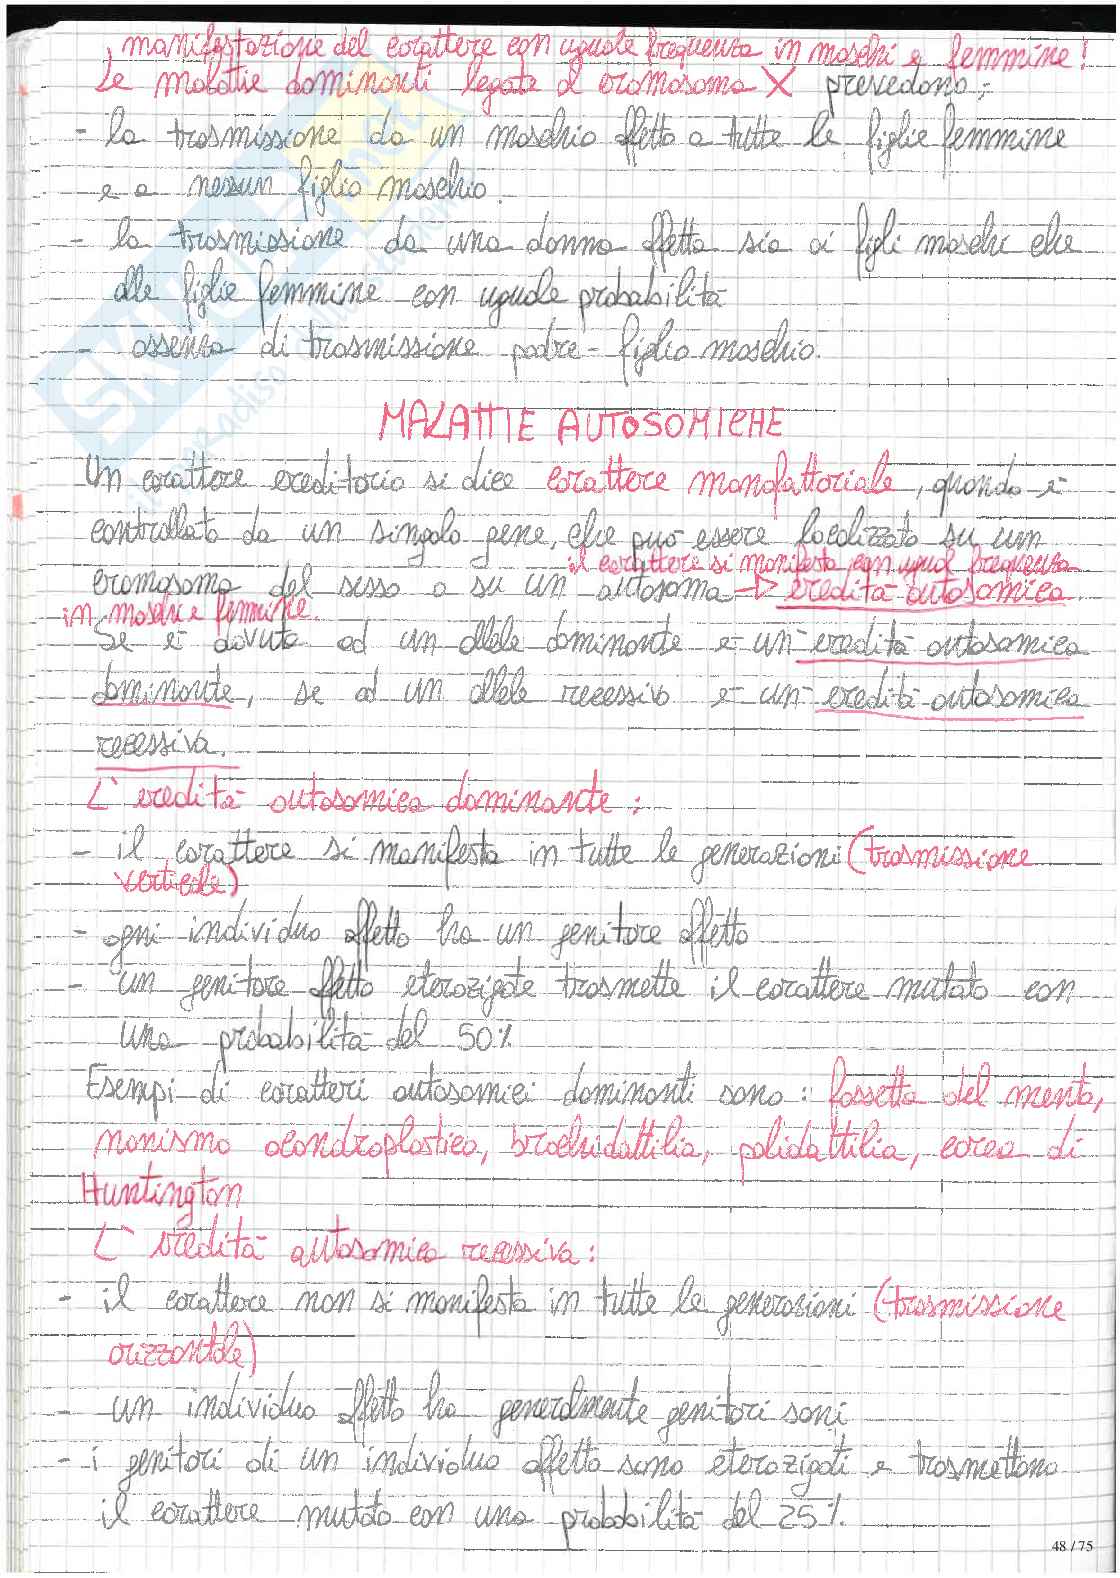 , manifestazione del carattere con uguale frequenza in maschi e femmine!
Le malattie dominanti legate al cromosoma X prevedono:
- la trasmissione da un maschio affetto a tutte le figlie femmine
e a nessun figlio maschio.
- la trasmissione da una donna affetta sia ai figli maschi che
alle figlie femmine con uguale probabilità
- assenza di trasmissione padre-figlio maschio.
MALATTIE AUTOSOMICHE
Un carattere ereditario si dice carattere monofattoriale, quando è
controllato da un singolo gene, che può essere localizzato su un
il carattere si manifesta con ugual frequenza
cromosoma del sesso o su un autosoma → eredità autosomica.
in maschi e femmine.
Se è dovuto ad un allele dominante è un eredità autosomica
dominante, se ad un allele recessivo è un eredità autosomica
recessiva.
L' eredità autosomica dominante:
- il carattere si manifesta in tutte le generazioni (trasmissione
verticale)
- ogni individuo affetto ha un genitore affetto
- un genitore affetto eterozigote trasmette il carattere mutato con
una probabilità del 50%
Esempi di caratteri autosomici dominanti sono: fossetta del mento,
nanismo acondroplastico, brachidattilia, polidattilia, corea di
Huntington
L' eredità autosomica recessiva:
- il carattere non si manifesta in tutte le generazioni (trasmissione
orizzontale)
- un individuo affetto ha generalmente genitori sani
- i genitori di un individuo affetto sono eterozigoti e trasmettono
il carattere mutato con una probabilità del 25%.
48 / 75